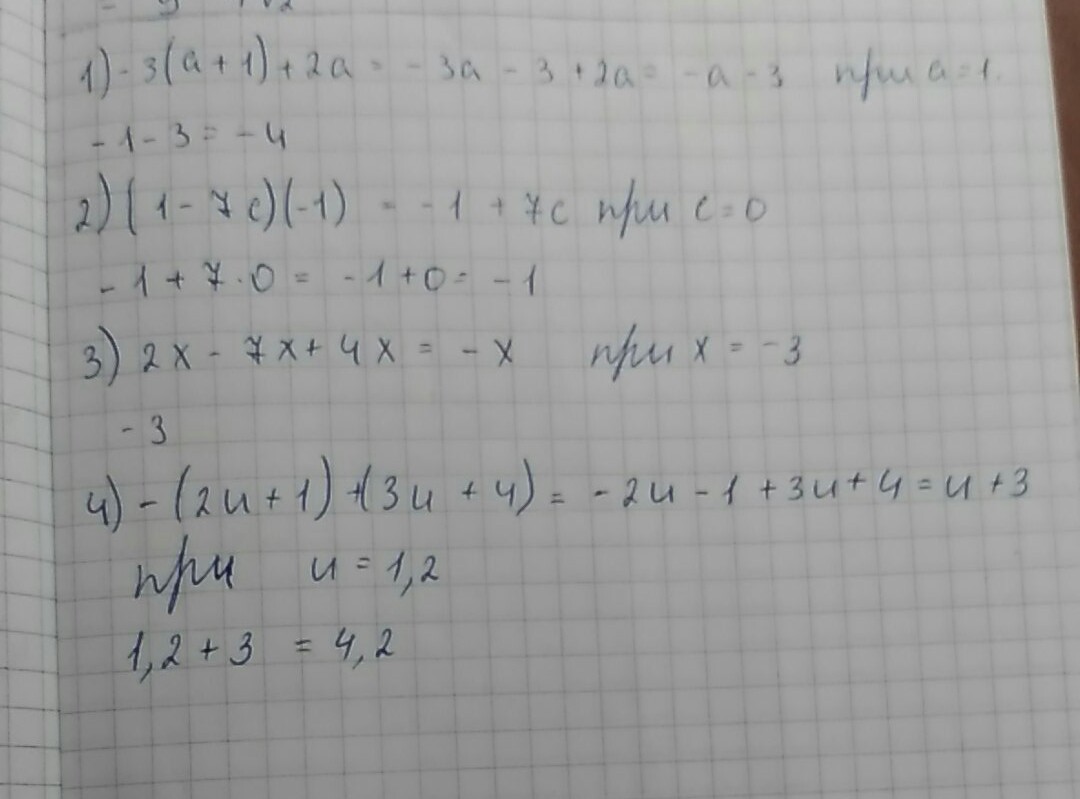 1) - 3(a + 1) + 2a = - 3a - 3 + 2a = -a - 3 при a = 1.
- 1 - 3 = - 4
2) (1 - 7c)(-1) = - 1 + 7c при c = 0
- 1 + 7 · 0 = - 1 + 0 = - 1
3) 2x - 7x + 4x = - x при x = - 3
- 3
4) - (2u + 1) + (3u + 4) = - 2u - 1 + 3u + 4 = u + 3
при u = 1,2
1,2 + 3 = 4,2